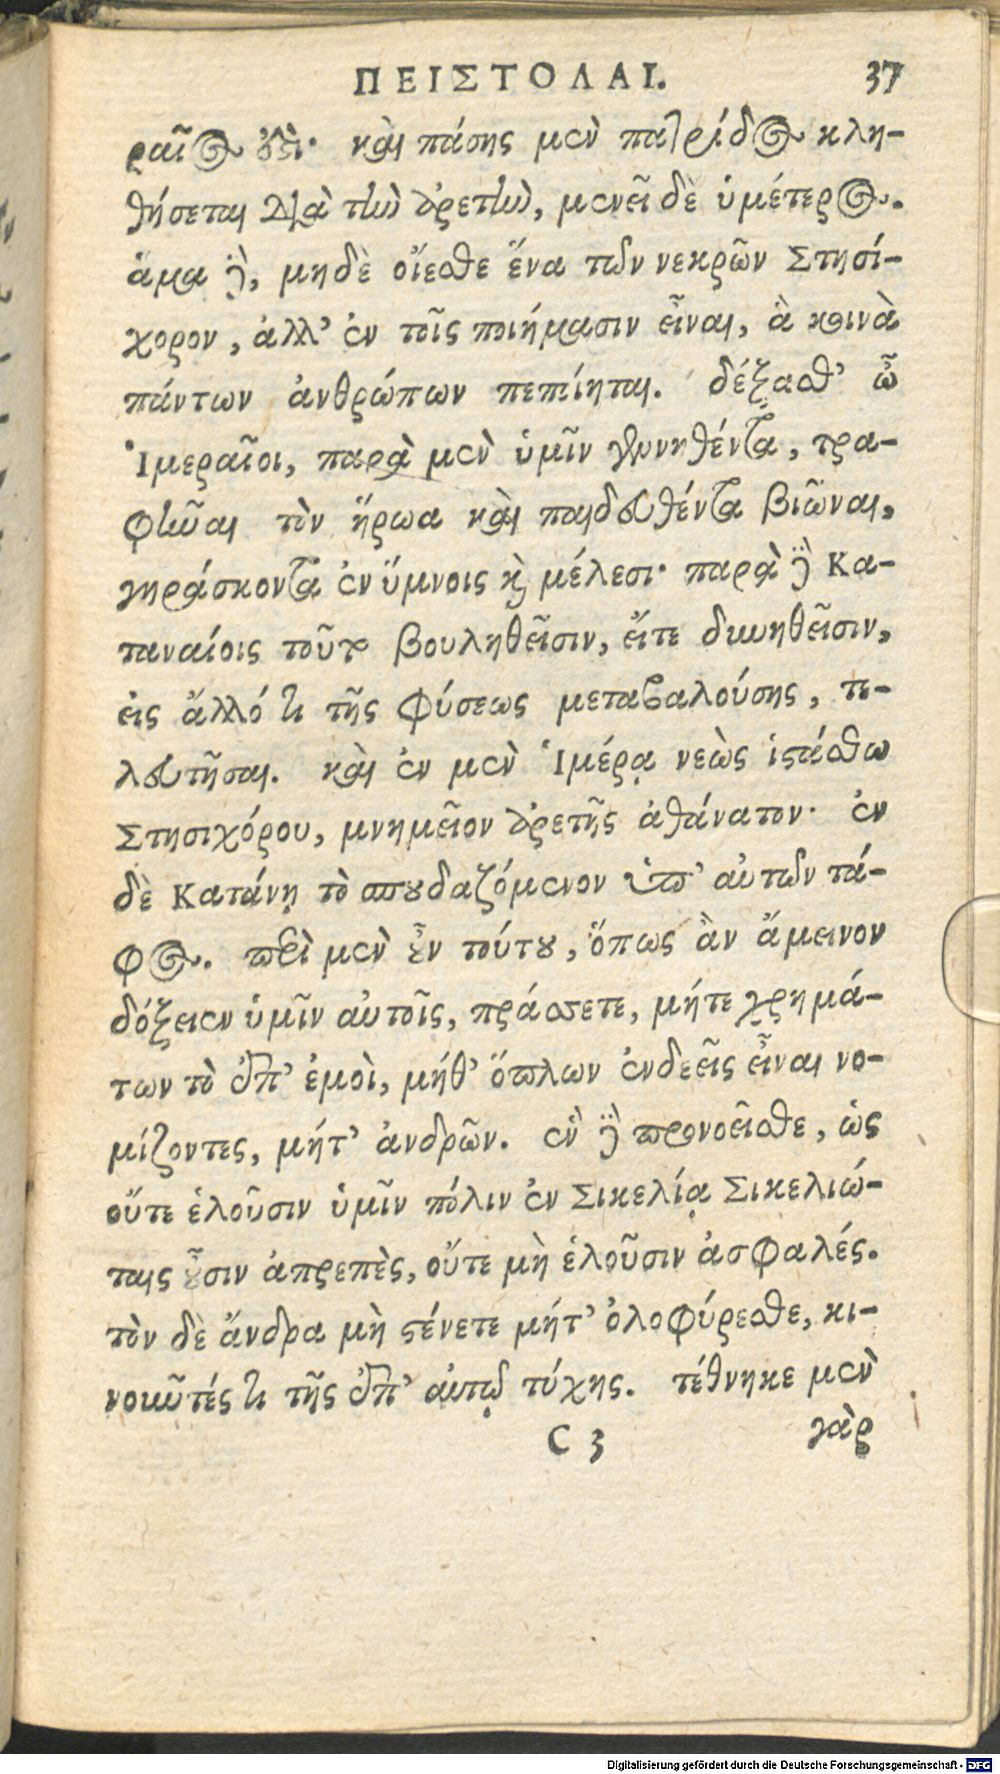 ΠΕΙΣΤΟΛΑΙ. 37
ραῖος ἐστὶ· καὶ πάσης μὲν πατρίδος κλη-
θήσεται διὰ τὴν ἀρετὴν, μενεῖ δὲ ὑμέτερος.
ἅμα δὲ, μηδὲ οἴεσθε ἕνα τῶν νεκρῶν Στησί-
χορον, ἀλλ' ἐν τοῖς ποιήμασιν εἶναι, ἃ κοινὰ
πάντων ἀνθρώπων πεποίηται. δέξασθ' ὦ
Ἱμεραῖοι, παρὰ μὲν ὑμῖν γεννηθέντα, τρα-
φῆναι τὸν ἥρωα καὶ παιδευθέντα βιῶναι,
γηράσκοντα ἐν ὕμνοις καὶ μέλεσι· παρὰ δὲ Κα-
ταναίοις τοῦτο βουληθεῖσιν, εἴτε δυνηθεῖσιν,
εἰς ἄλλό τι τῆς φύσεως μεταβαλούσης, τε-
λευτῆσαι. καὶ ἐν μὲν Ἱμέρᾳ νεὼς ἱστάσθω
Στησιχόρου, μνημεῖον ἀρετῆς ἀθάνατον· ἐν
δὲ Κατάνῃ τὸ σπουδαζόμενον ὑπ' αὐτῶν τά-
φος. περὶ μὲν οὖν τούτου, ὅπως ἂν ἄμεινον
δόξειεν ὑμῖν αὐτοῖς, πράσσετε, μήτε χρημά-
των τὸ ἐπ' ἐμοὶ, μήθ' ὅπλων ἐνδεεῖς εἶναι νο-
μίζοντες, μήτ' ἀνδρῶν. ἓν δὲ προνοεῖσθε, ὡς
οὔτε ἑλοῦσιν ὑμῖν πόλιν ἐν Σικελίᾳ Σικελιώ-
ταις οὖσιν ἀπρεπὲς, οὔτε μὴ ἑλοῦσιν ἀσφαλές.
τὸν δὲ ἄνδρα μὴ στένετε μήτ' ὀλοφύρεσθε, κι-
νοῦντές τι τῆς ἐπ' αὐτῷ τύχης. τέθνηκε μὲν
C 3 γὰρ
Digitalisierung gefördert durch die Deutsche Forschungsgemeinschaft - DFG